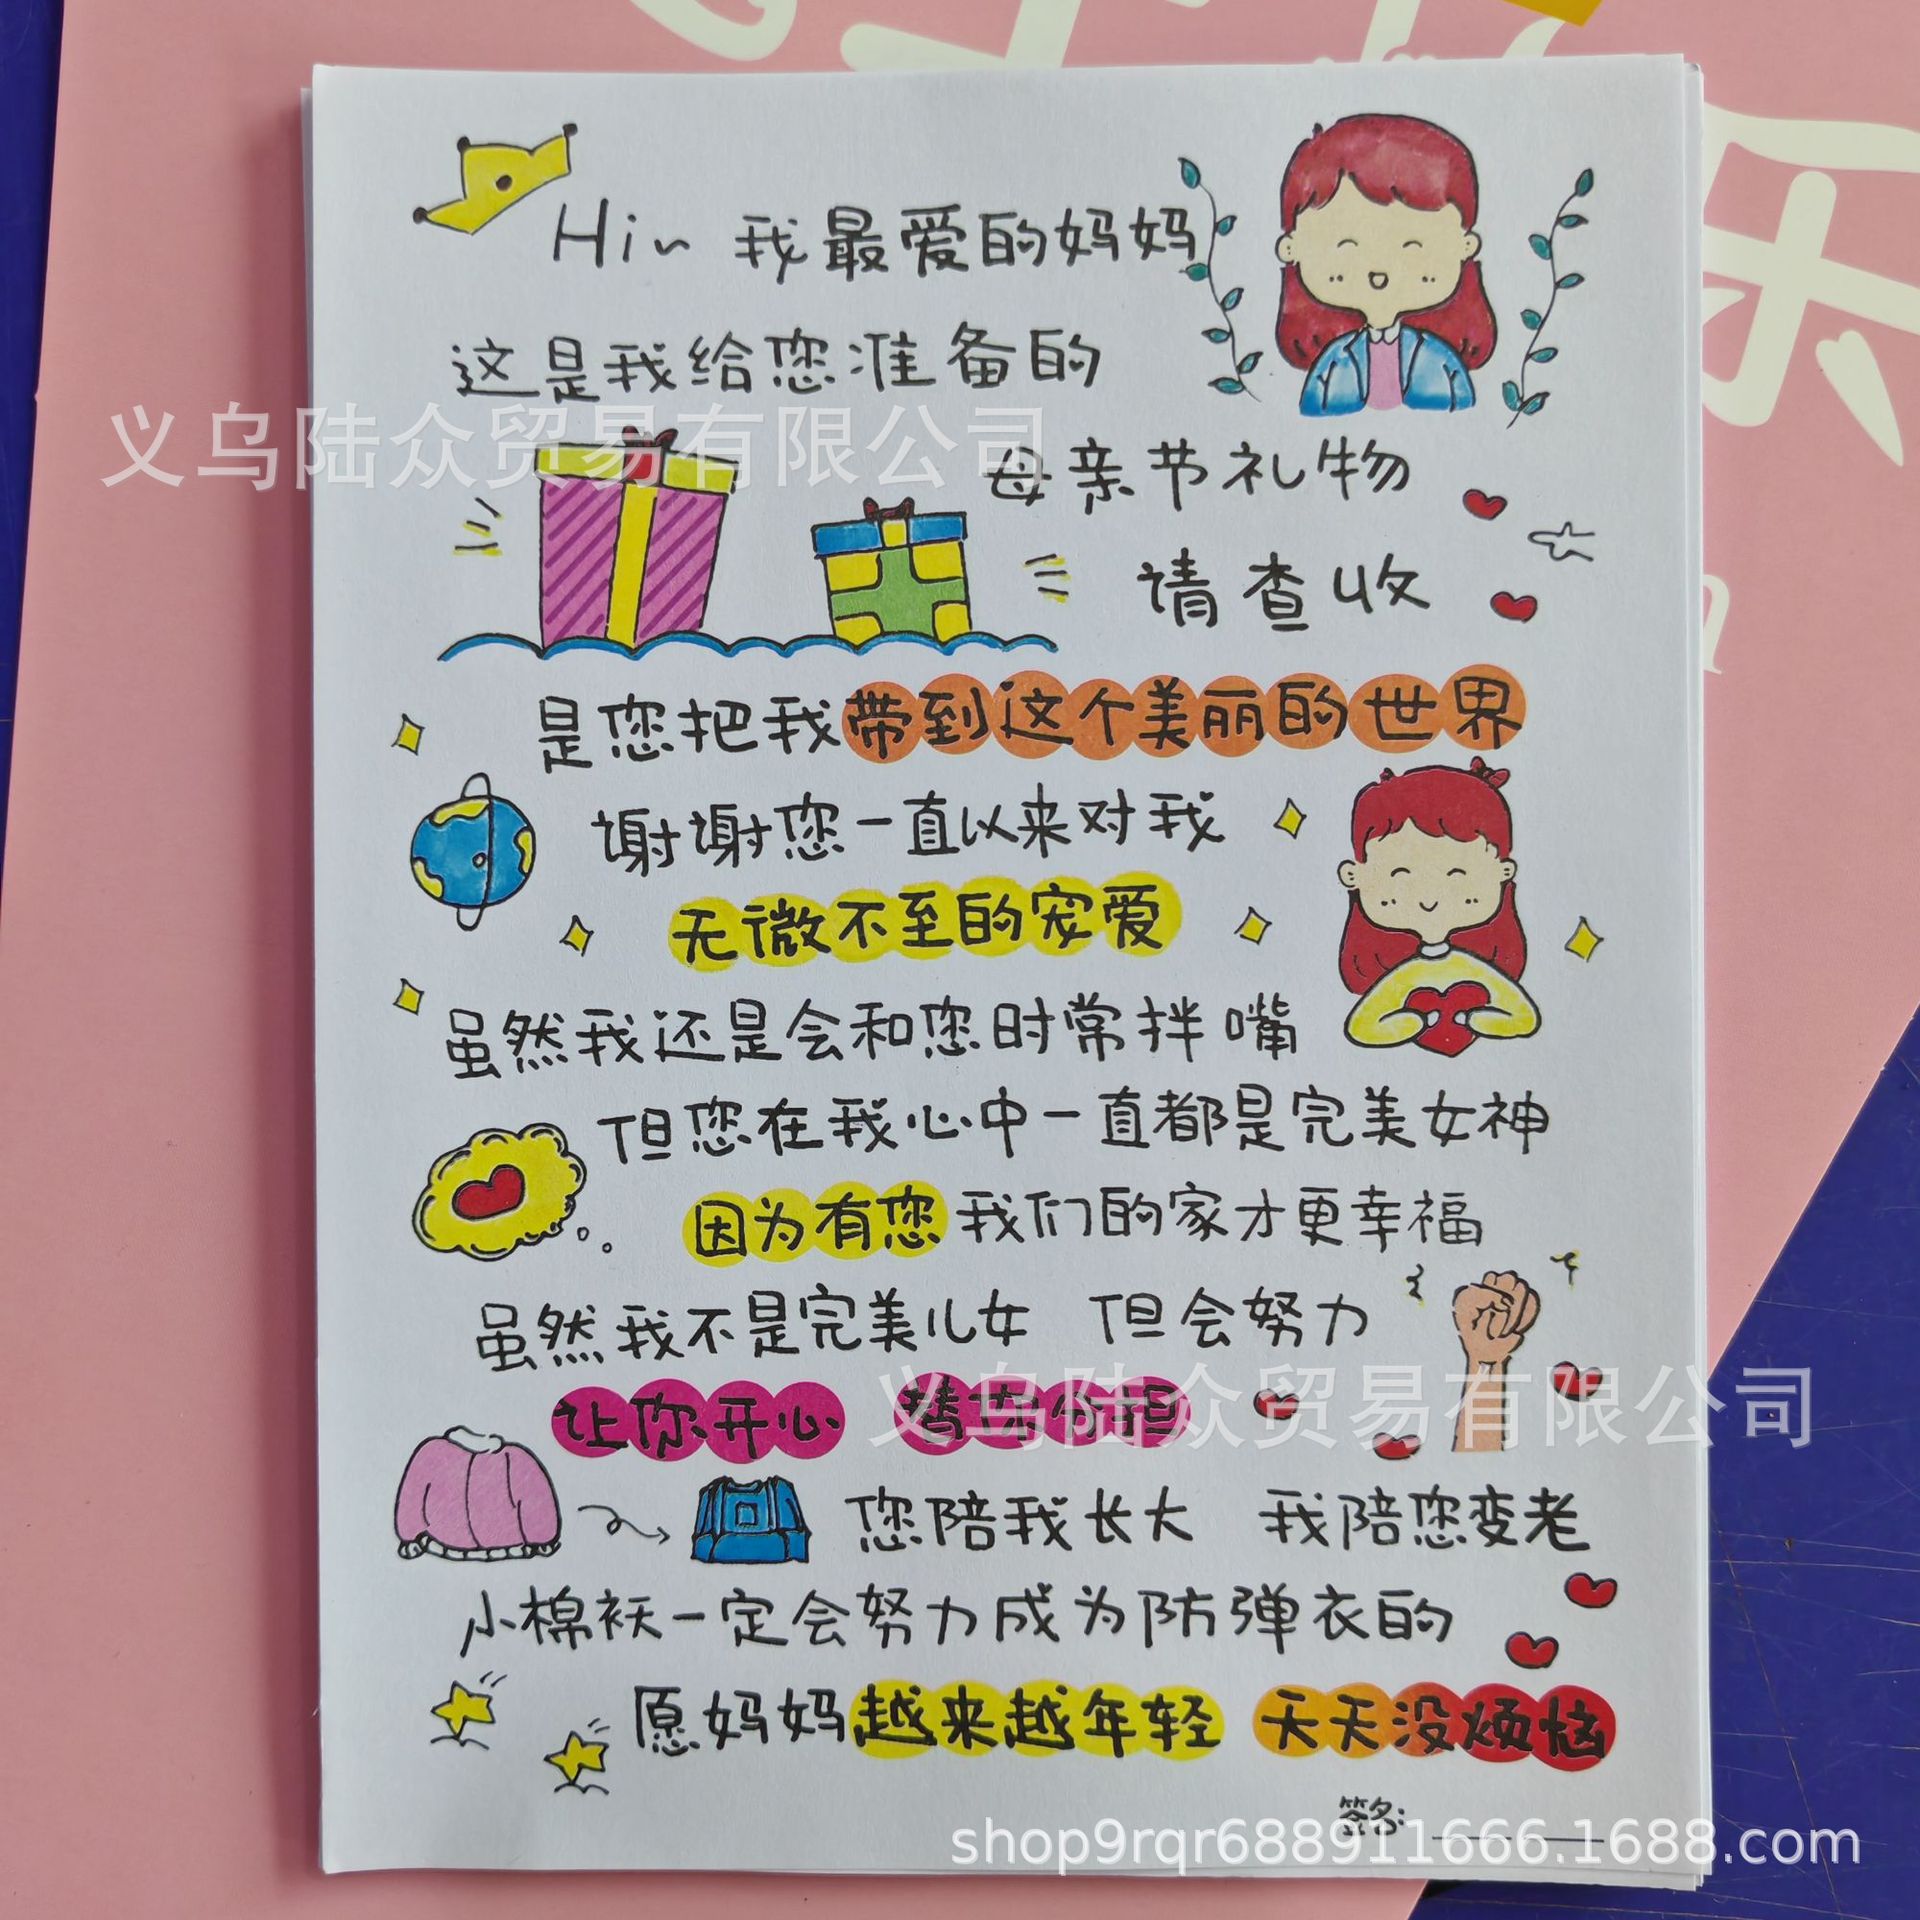 Hi~ 我最爱的妈妈
这是我给您准备的
义乌陆众贸易有限公司
母亲节礼物
请查收
是您把我带到这个美丽的世界
谢谢您一直以来对我
无微不至的宠爱
虽然我还是会和您时常拌嘴
但您在我心中一直都是完美女神
因为有您我们的家才更幸福
虽然我不是完美儿女 但会努力
让你开心 替您分担
义乌陆众贸易有限公司
您陪我长大 我陪您变老
小棉袄一定会努力成为防弹衣的
愿妈妈越来越年轻 天天没烦恼
签名:
shop9rqr688911666.1688.com